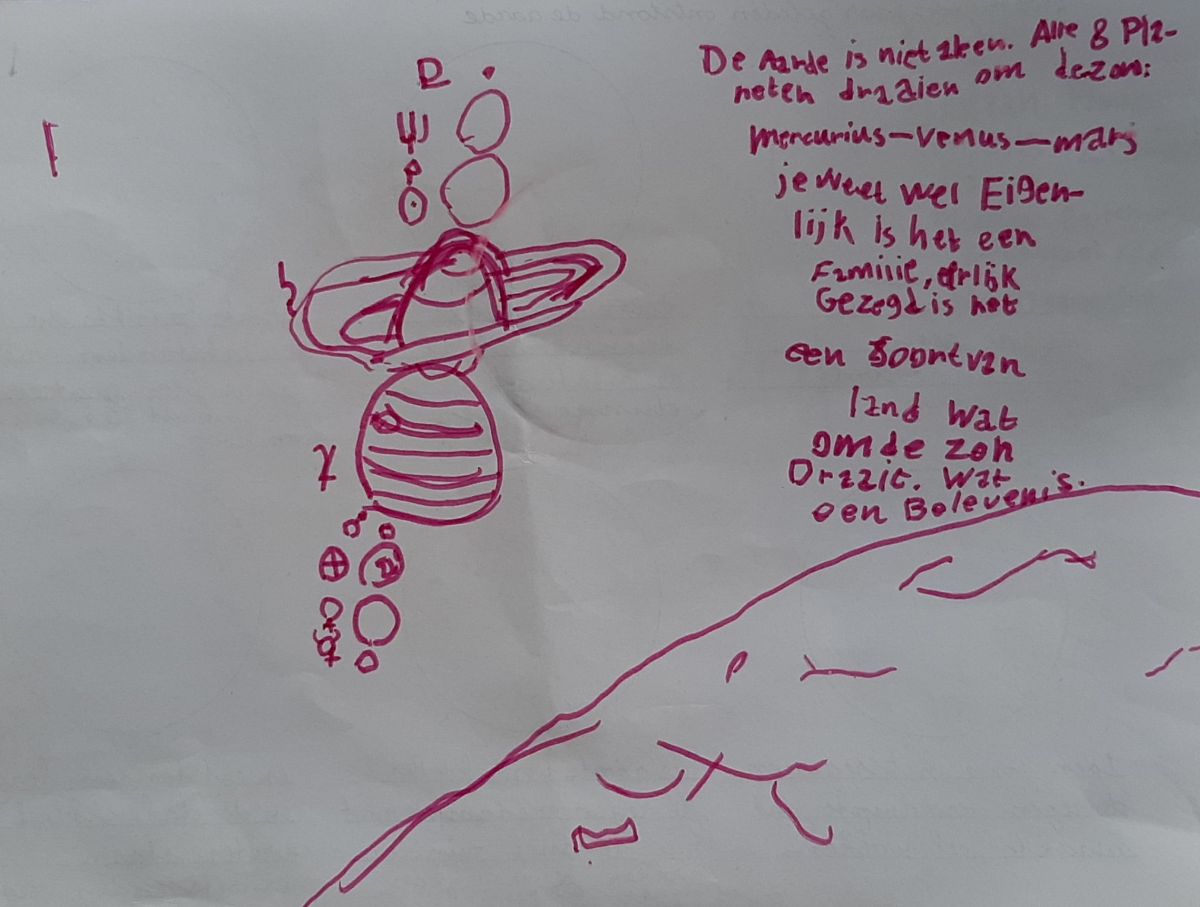 De Aarde is niet alleen. Alle 8 Pla-
neten draaien om dezon:
mercurius-venus-mars
je weet wel Eigen-
lijk is het een
Familie, eerlijk
Gezegd is het
een Soort van
land wat
omde zon
Draait. Wat
een Belevenis.